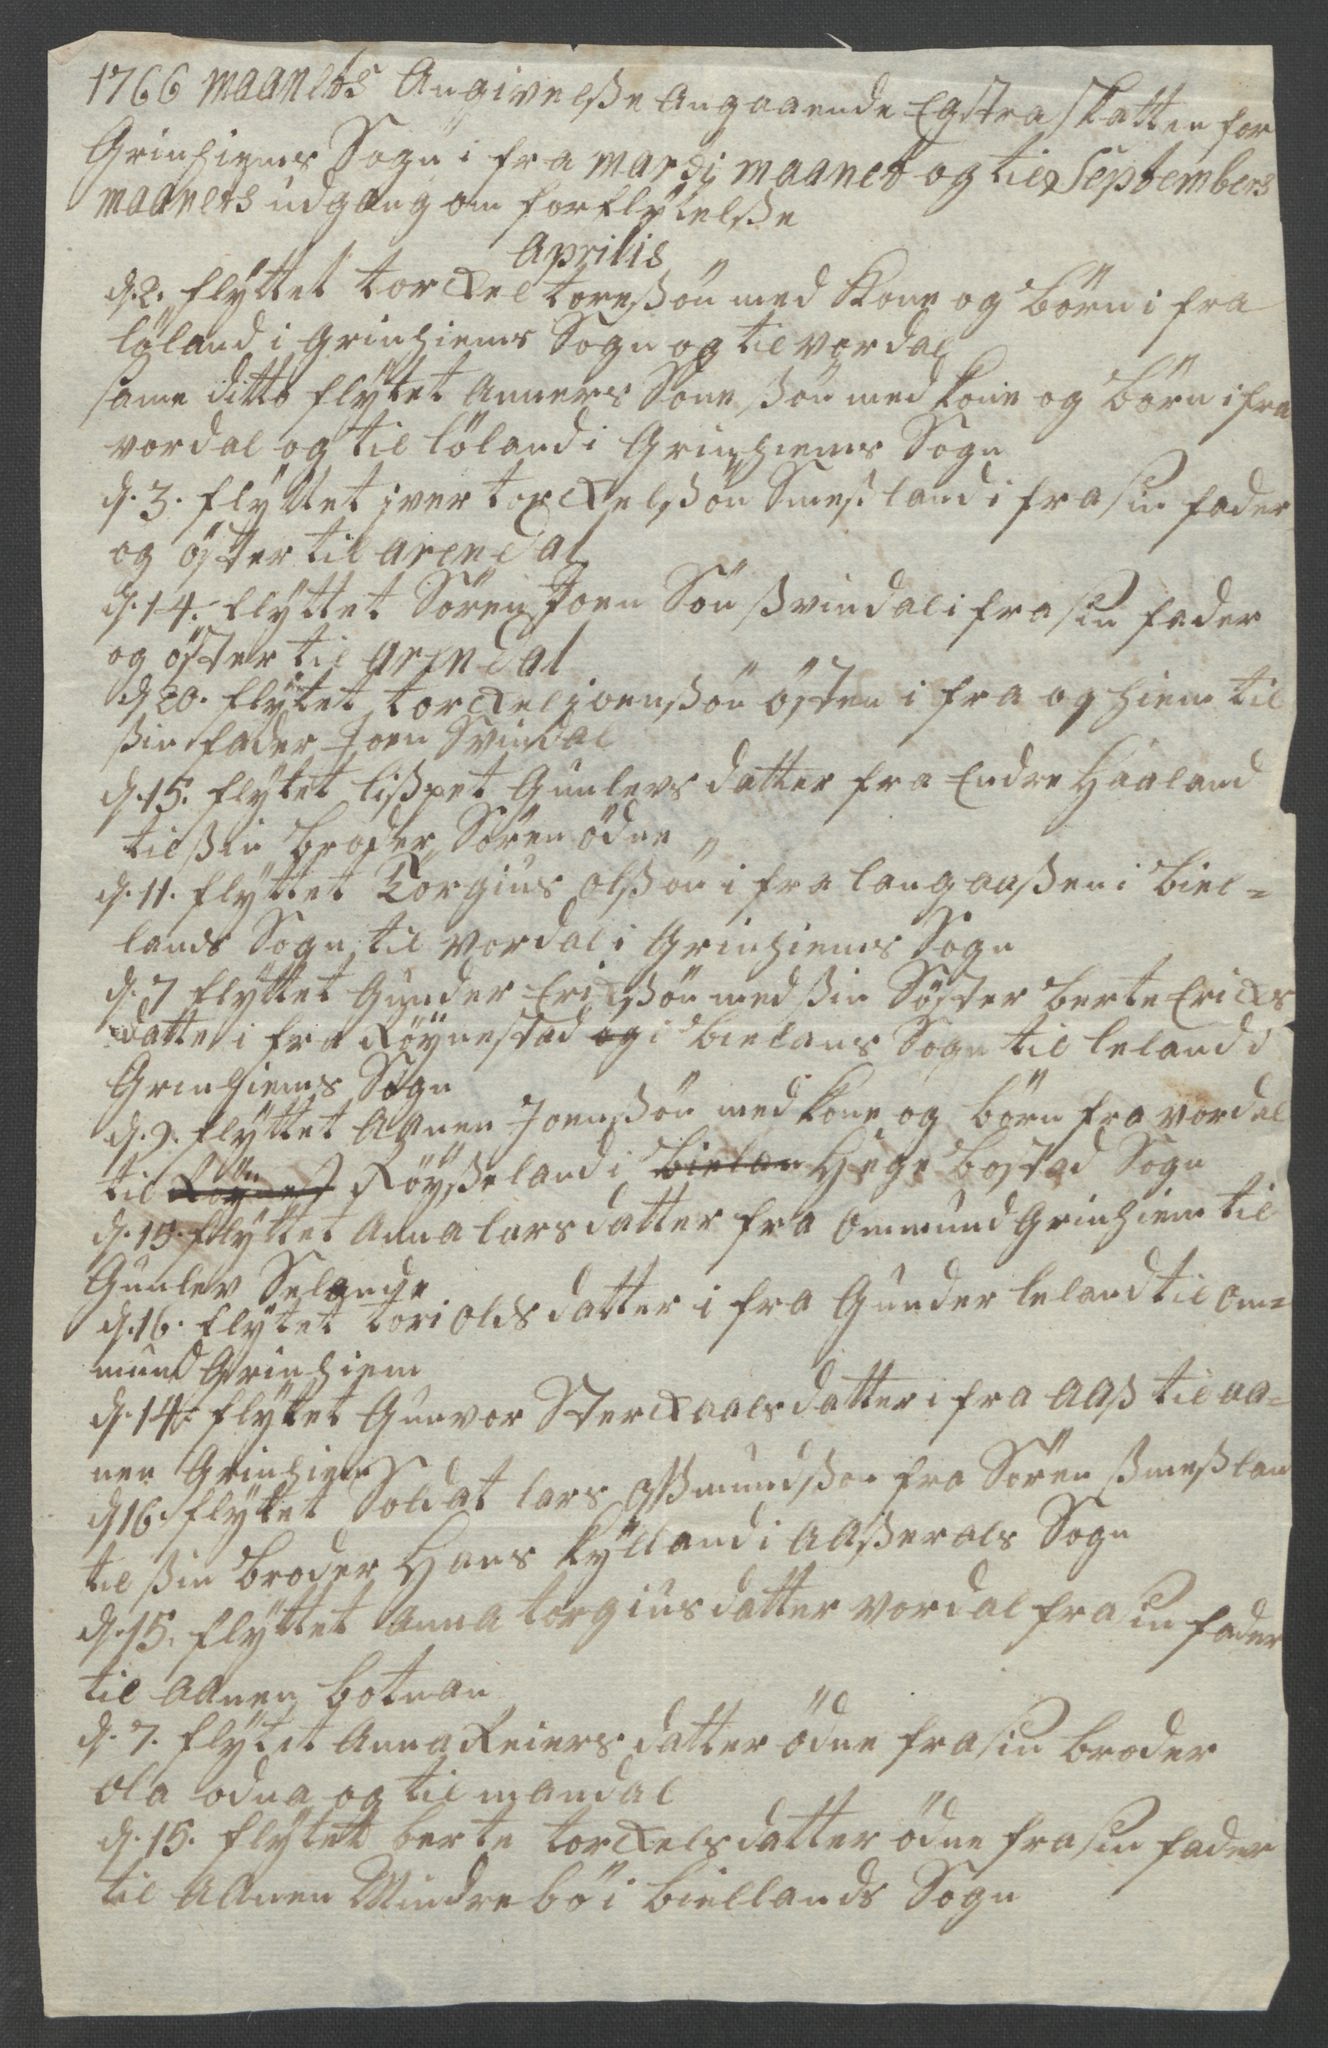 1766 maanets Angivelße Angaaende Egstra skatten for
Grinhiems Sogn i fra mardj maanet og til Septembers
maanets udgang om forflytelße
Aprilis
d. 2. flyttet torckel toreßön med kone og börn i fra
löland i grinhiems Sogn og til vordal
same ditto flytet Anners Sone ßön med kone og börn i fra
vordal og til löland i Grinhiems Sogn
d. 3. flyttet jver torckelßön Smeßland i fra sin fader
og öster til arendal
d. 14. flyttet Sören Joen Sön ßvindal i fra sin fader
og öster til arendal
d 20. flytet torckel joenßön östen i fra og hiem til
ßin fader Joen Svindal
d. 15. flytet lißpet Gunlevs datter fra Endre Haaland
til ßin broder Sören ödne
d. 11. flyttet Torgius olßön i fra langaaßen i biel=
lands Sogn til vordal i Grinhiems Sogn
d. 7 flyttet Gunder Erickßön med ßin Söster berte Ericks
datter i fra Röynestad og i bielans Sogn til leland i
Grinhiems Sogn
d. 9. flyttet Aanen Joenßön med kone og börn fra vordal
til Röynes Röyßeland i bielan Hege bostad Sogn
d. 15. flyttet Anna lars datter fra Ommund Grinhiem til
Gunlev Selande
d. 16. flytet tori olds datter i fra Gunder leland til om=
mund Grinhiem
d. 14. flytet Gunvor Sterckaals datter i fra Aaß til aa=
nen Grinhiem
d 16. flytet Soldat lars aßmundßon fra Sören ßmeßlan
til ßin broder Hans kylland i Aaßerals Sogn
d. 15. flyttet Anna torgius datter vordal fra sin fader
til Aanen botnan
d. 7. flytet Anna Reiers datter ödne fra sin broder
ola odna og til mandal
d. 15. flytet berte torckels datter ödne fra sin fader
til Aanen Mindrebö i biellands Sogn